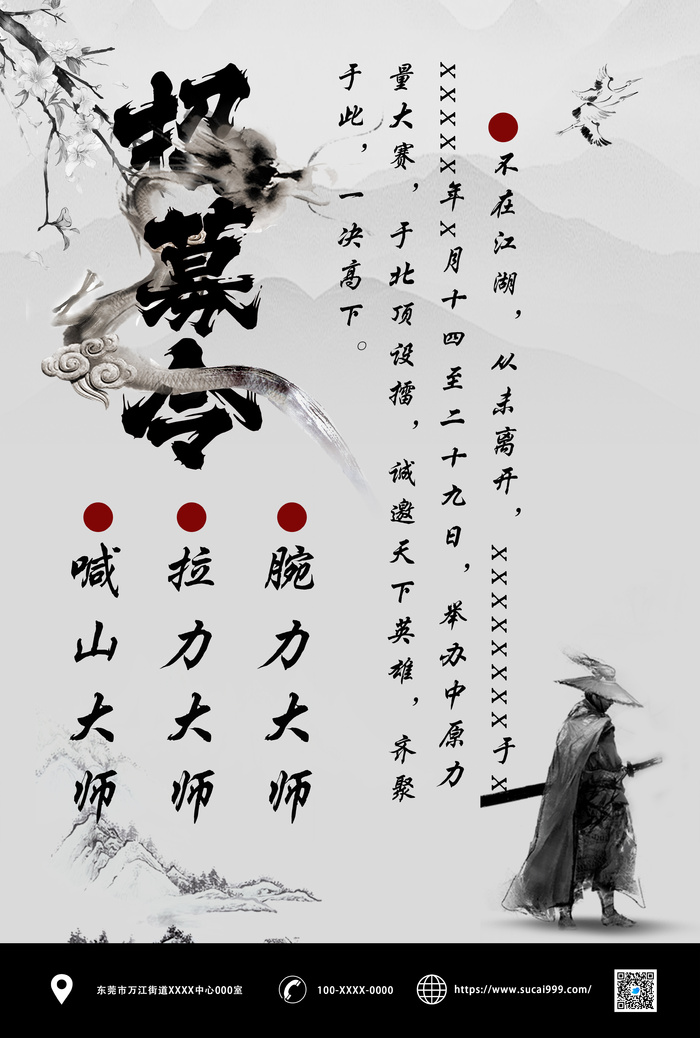 招募令
不在江湖，从未离开，XXXXXXXXXX于X
XXXXXX年X月十四至二十九日，举办中原力
量大赛，于北顶设擂，诚邀天下英雄，齐聚
于此，一决高下。
腕力大师
拉力大师
喊山大师
东莞市万江街道XXXX中心000室
100-XXXX-0000
https://www.sucai999.com/